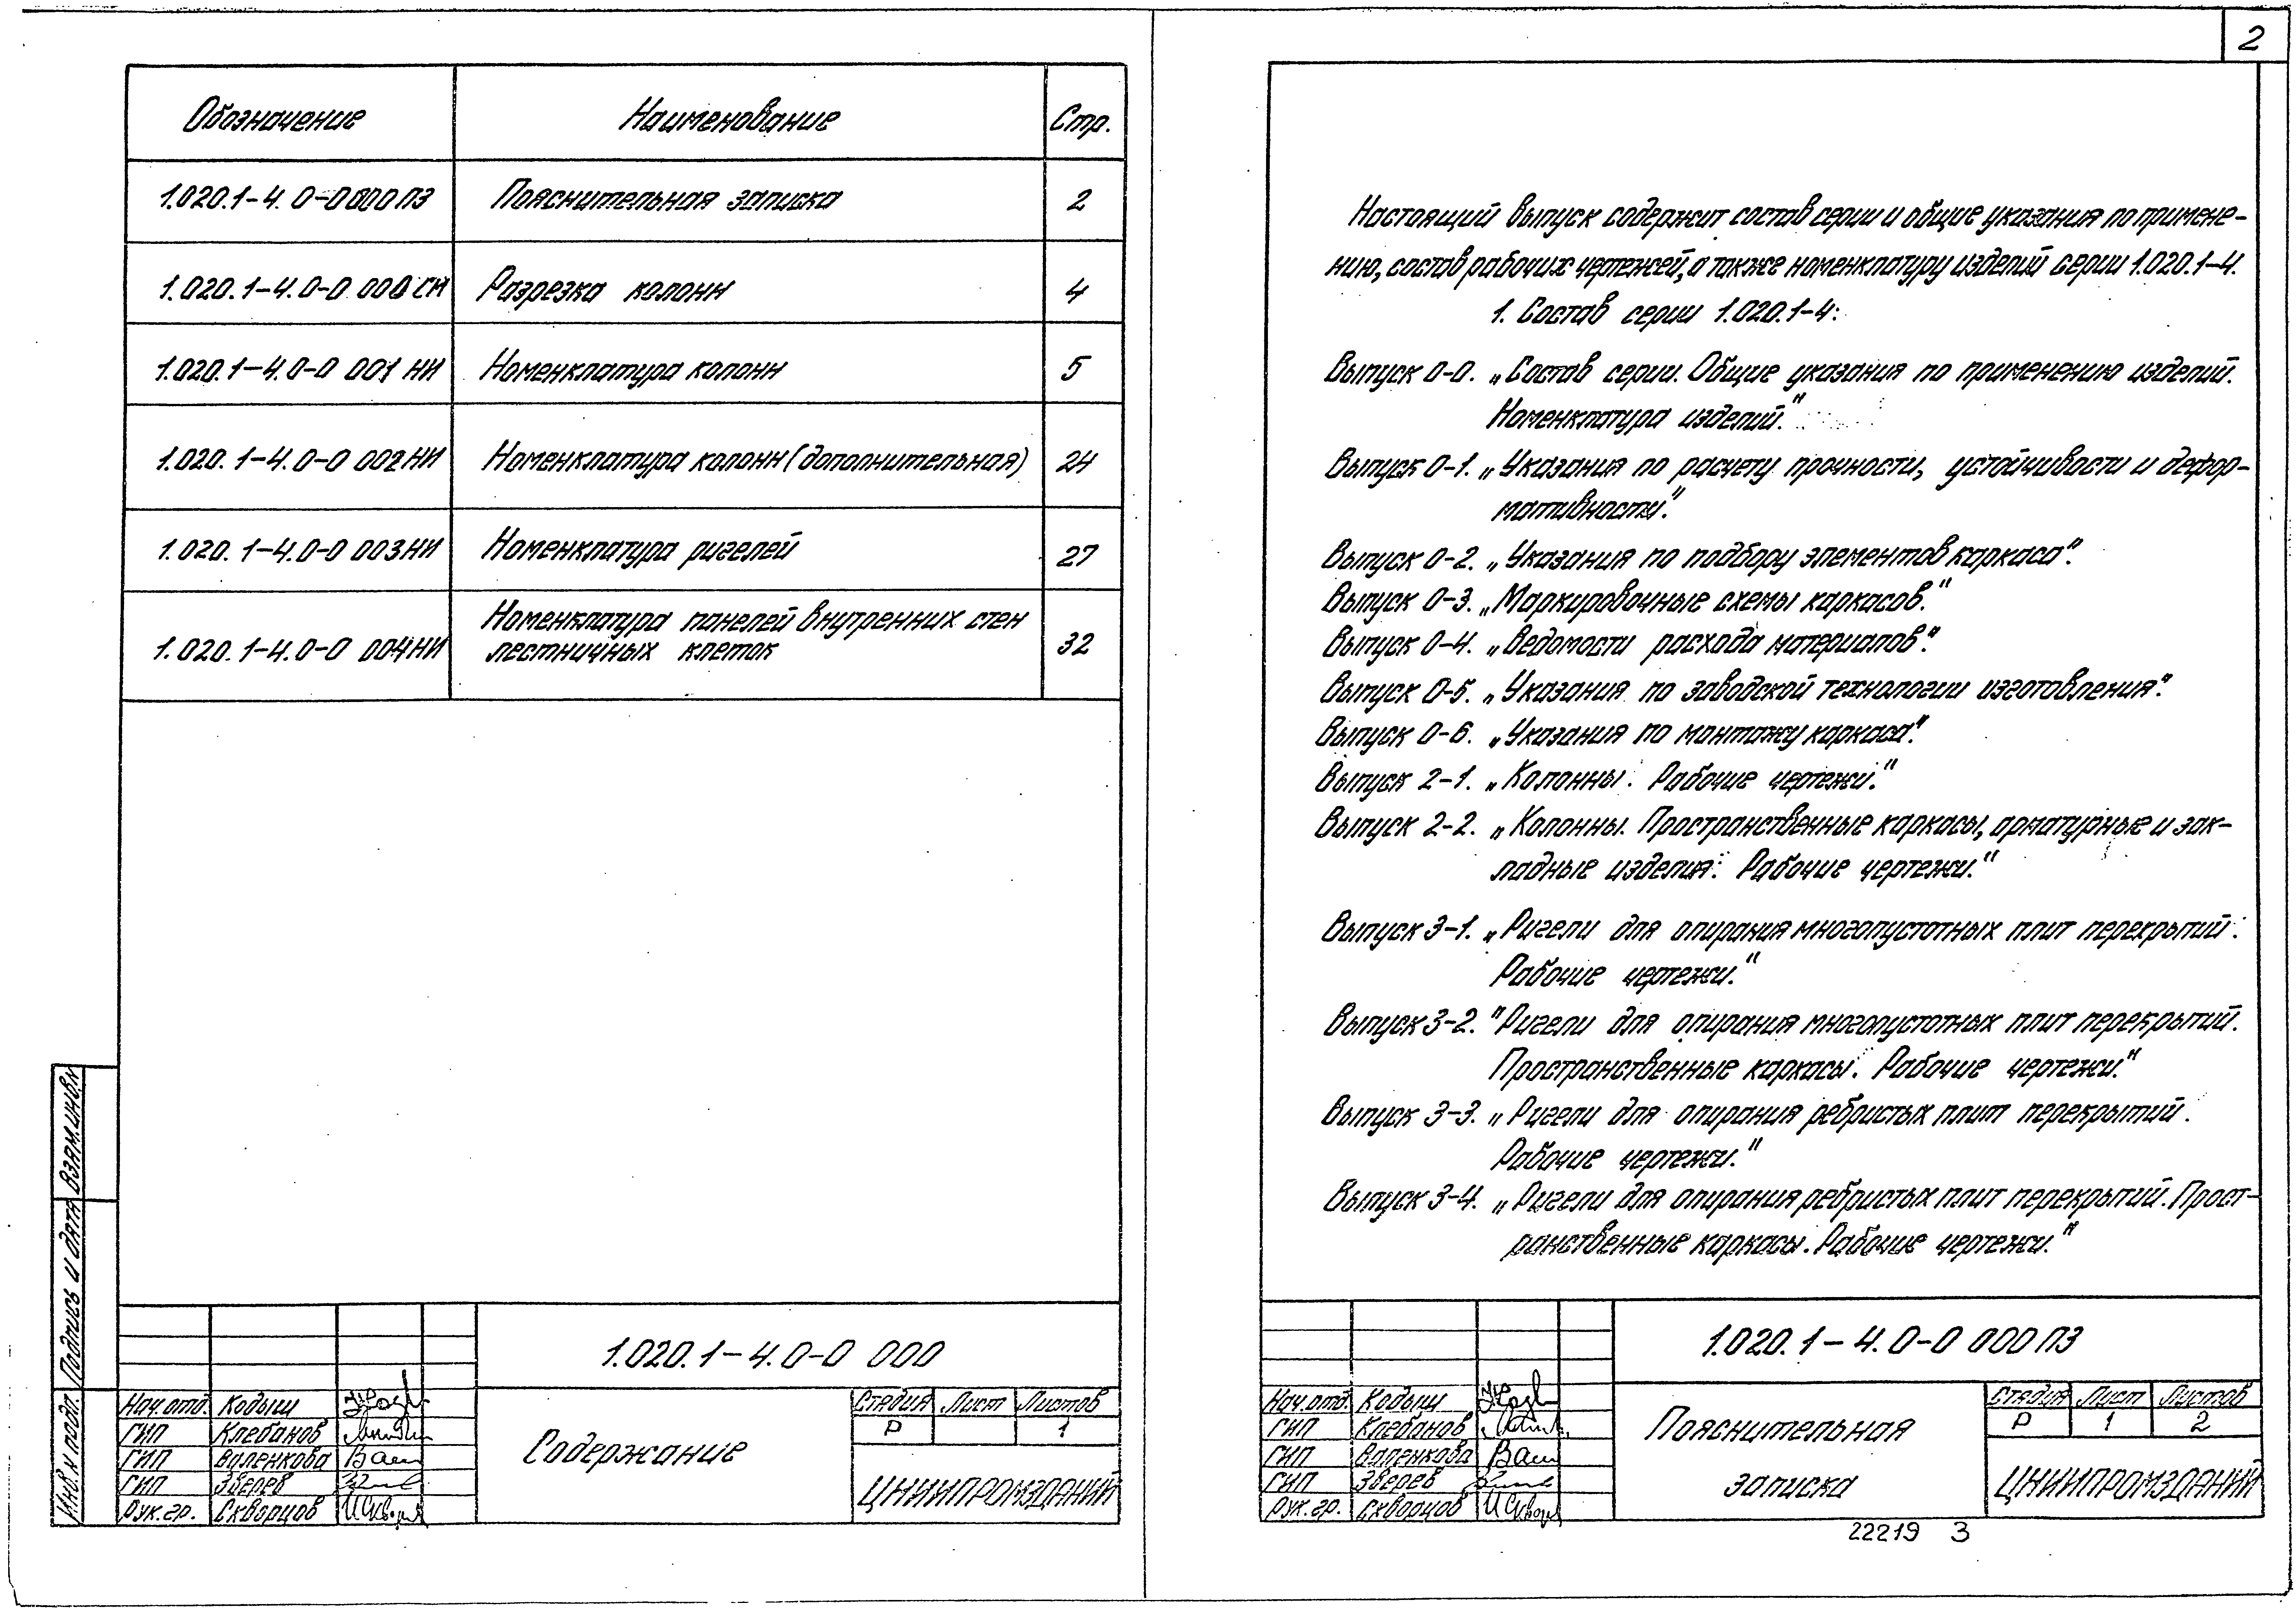 Обозначение Наименование Стр.
1.020.1-4.0-0 000 ПЗ Пояснительная записка 2
1.020.1-4.0-0 000 СМ Разрезка колонн 4
1.020.1-4.0-0 001 НИ Номенклатура колонн 5
1.020.1-4.0-0 002 НИ Номенклатура колонн (дополнительная) 24
1.020.1-4.0-0 003 НИ Номенклатура ригелей 27
Номенклатура панелей внутренних стен
1.020.1-4.0-0 004 НИ лестничных клеток 32
Взам.инв.N
Подпись и дата
Инв.N подл.
1.020.1-4.0-0 000
Нач.отд. Кодыш
ГИП Клебанов
ГИП Валенкова
ГИП Зверев
Рук.гр. Скворцов
Содержание
Стадия Лист Листов
Р 1
ЦНИИПРОМЗДАНИЙ
2
Настоящий выпуск содержит состав серии и общие указания по примене-
нию, состав рабочих чертежей, а также номенклатуру изделий серии 1.020.1-4.
1. Состав серии 1.020.1-4:
Выпуск 0-0. „Состав серии. Общие указания по применению изделий.
Номенклатура изделий."
Выпуск 0-1. „Указания по расчету прочности, устойчивости и дефор-
мативности".
Выпуск 0-2. „Указания по подбору элементов каркаса".
Выпуск 0-3. „Маркировочные схемы каркасов."
Выпуск 0-4. „Ведомости расхода материалов".
Выпуск 0-5. „Указания по заводской технологии изготовления".
Выпуск 0-6. „Указания по монтажу каркаса".
Выпуск 2-1. „Колонны. Рабочие чертежи."
Выпуск 2-2. „Колонны. Пространственные каркасы, арматурные и зак-
ладные изделия. Рабочие чертежи."
Выпуск 3-1. „Ригели для опирания многопустотных плит перекрытий.
Рабочие чертежи."
Выпуск 3-2. "Ригели для опирания многопустотных плит перекрытий.
Пространственные каркасы. Рабочие чертежи."
Выпуск 3-3. „Ригели для опирания ребристых плит перекрытий.
Рабочие чертежи."
Выпуск 3-4. „Ригели для опирания ребристых плит перекрытий. Прост-
ранственные каркасы. Рабочие чертежи."
1.020.1-4.0-0 000 ПЗ
Нач.отд. Кодыш
ГИП Клебанов
ГИП Валенкова
ГИП Зверев
Рук.гр. Скворцов
Пояснительная
записка
Стадия Лист Листов
Р 1 2
ЦНИИПРОМЗДАНИЙ
22219 3